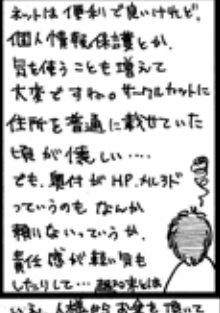 ネットは便利で良いけれど、
個人情報保護とか、
気を使うことも増えて
大変ですね。サークルカットに
住所を普通に載せていた
頃が懐しい‥‥
でも、奥付がHP、メルアド
っていうのもなんか
頼りないっていうか、
責任感が軽い気も
したりして‥‥
いえ、人様からお金を頂いて